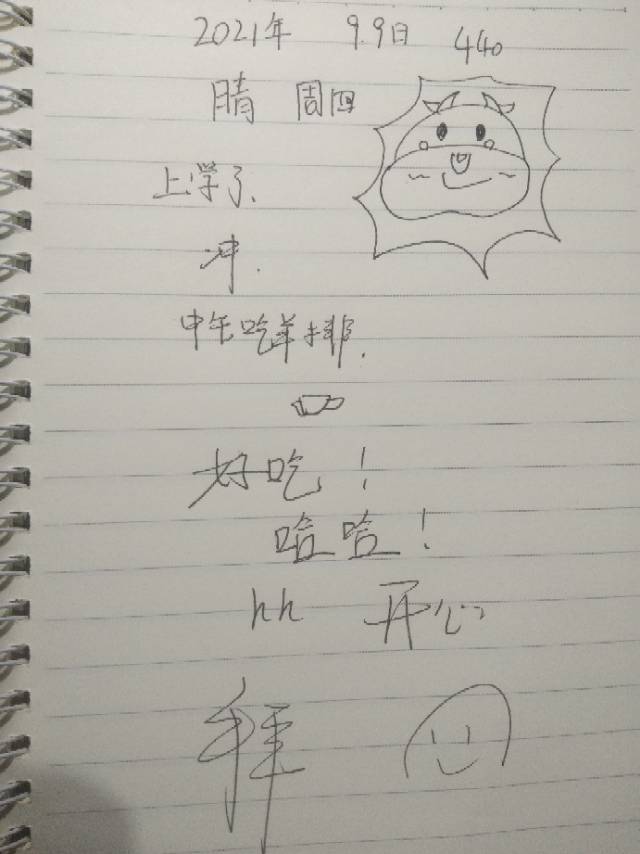 2021年 9.9日 440
晴 周四
上学了.
冲.
中午吃羊排.
好吃！
哈哈！
hh 开心
拜